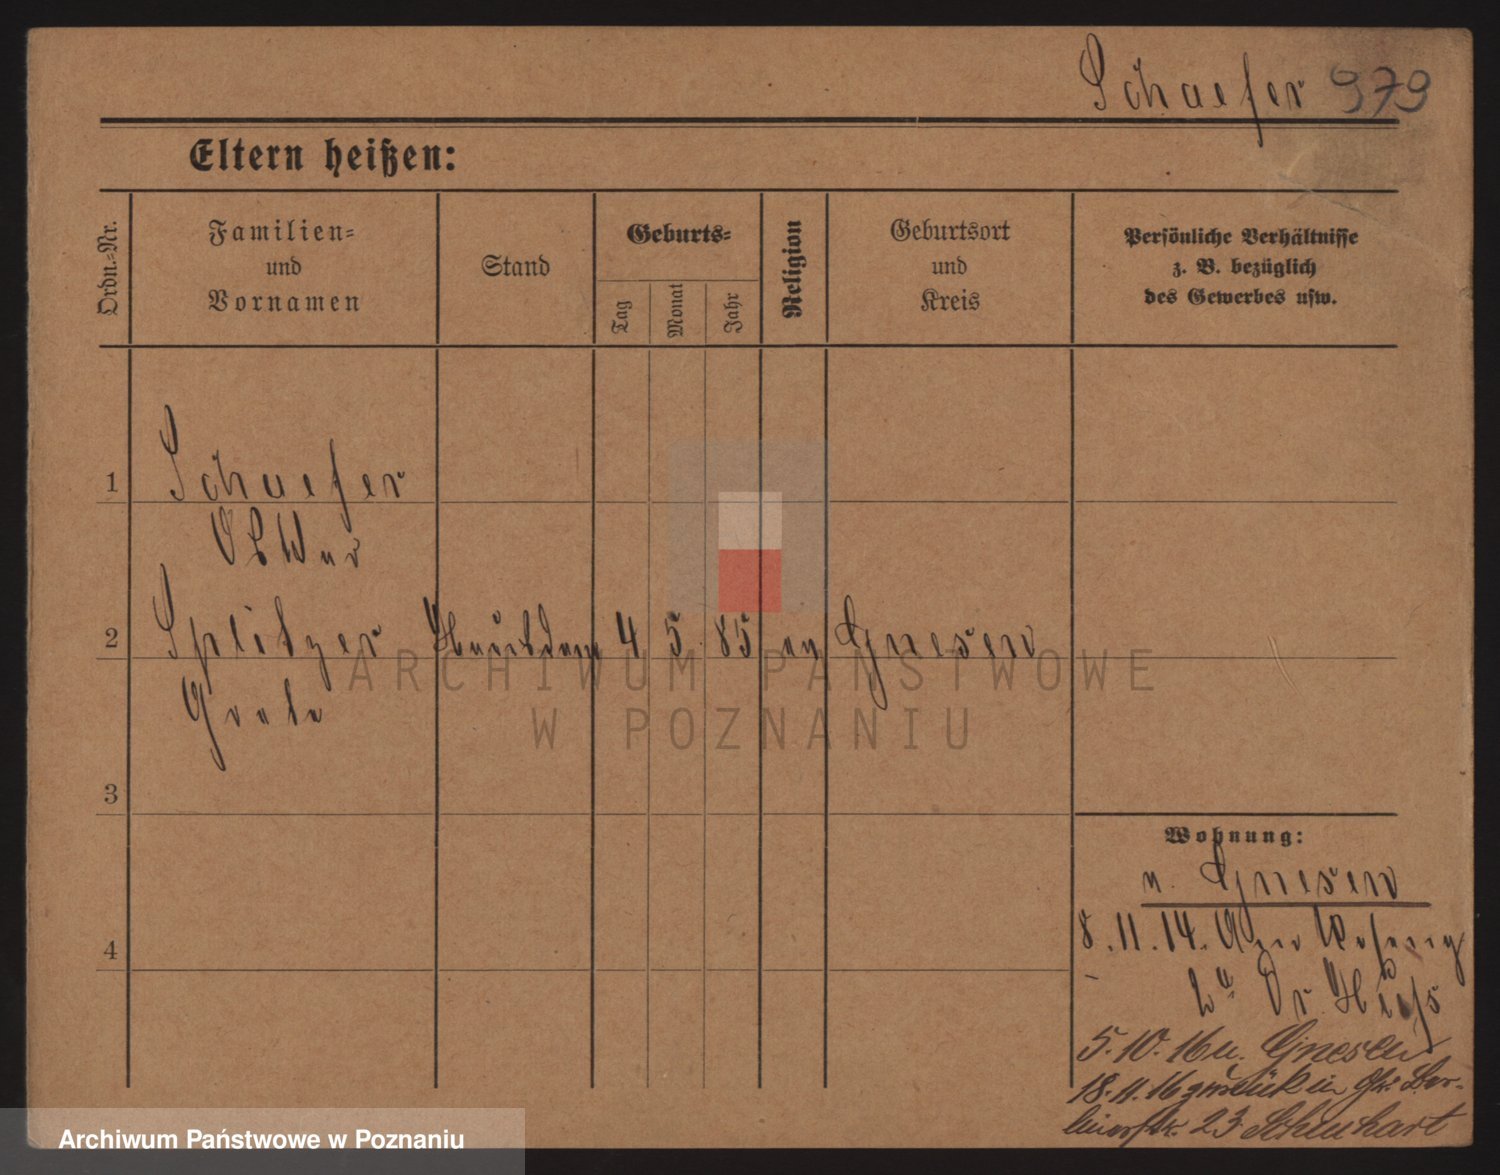 Schaefer 979
Eltern heißen:
Ordn.=Nr.
Familien=
und
Vornamen
Stand
Geburts=
Tag
Monat
Jahr
Religion
Geburtsort
und
Kreis
Persönliche Verhältnisse
z. B. bezüglich
des Gewerbes usw.
1 Schaefer
Oskar
2 Splitzer 4 5 85 ev Gnesen
Grete
3
4
Wohnung:
n. Gnesen
8.11.14.
Dr.
5.10.16 n. Gnesen
18.11.16 zurück in
23
ARCHIWUM PAŃSTWOWE
W POZNANIU
Archiwum Państwowe w Poznaniu